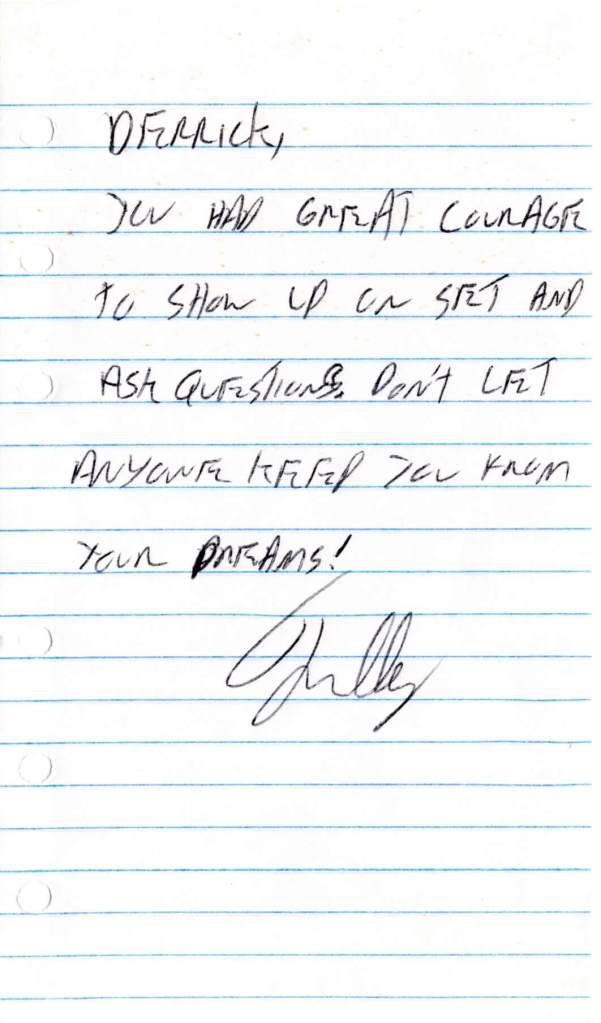 DERRICK,
YOU HAD GREAT COURAGE
TO SHOW UP ON SET AND
ASK QUESTIONS. DON'T LET
ANYONE KEEP YOU FROM
YOUR DREAMS!